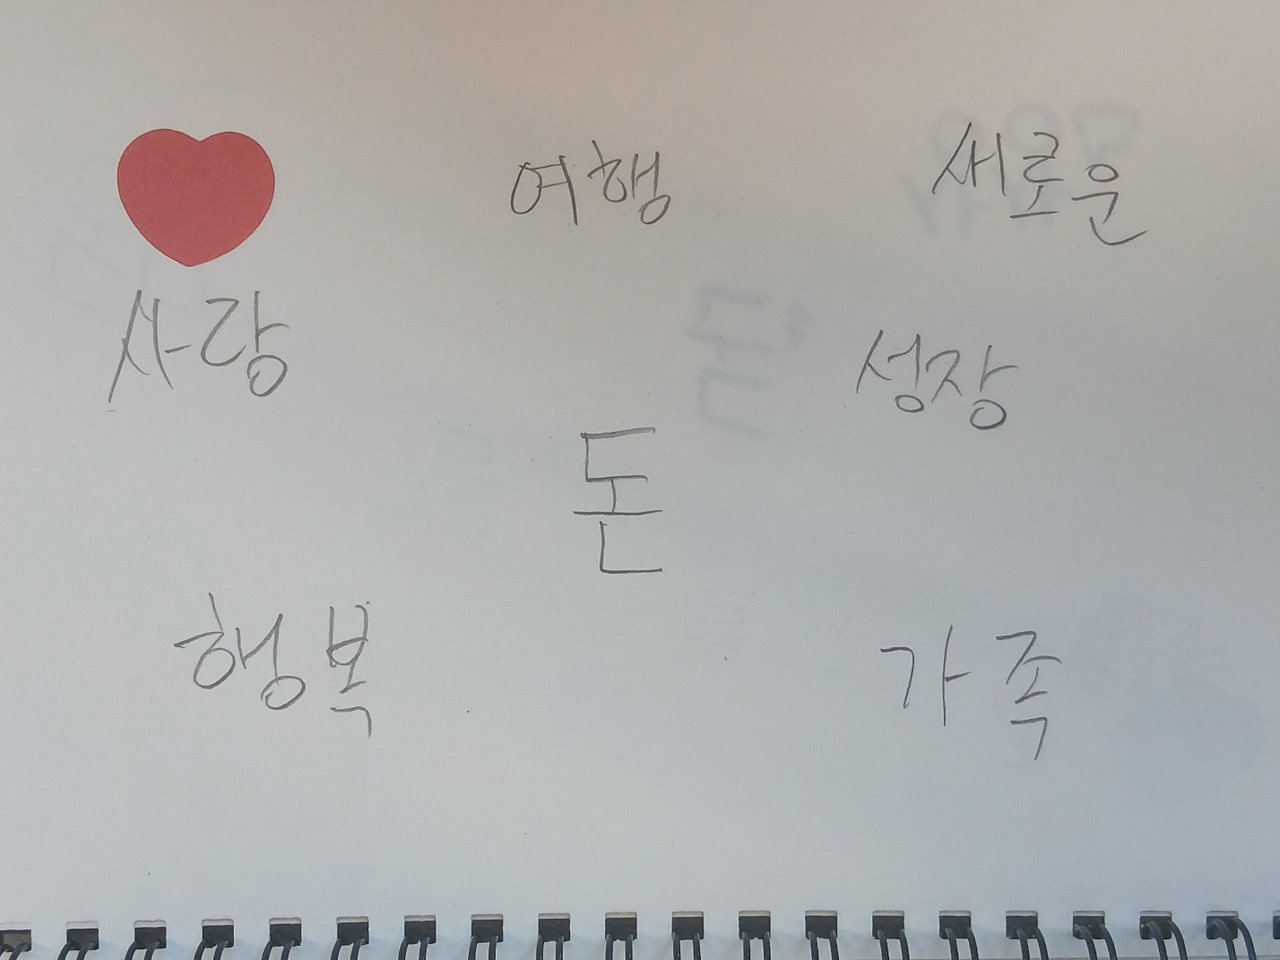 여행
새로운
사랑
성장
돈
행복
가족